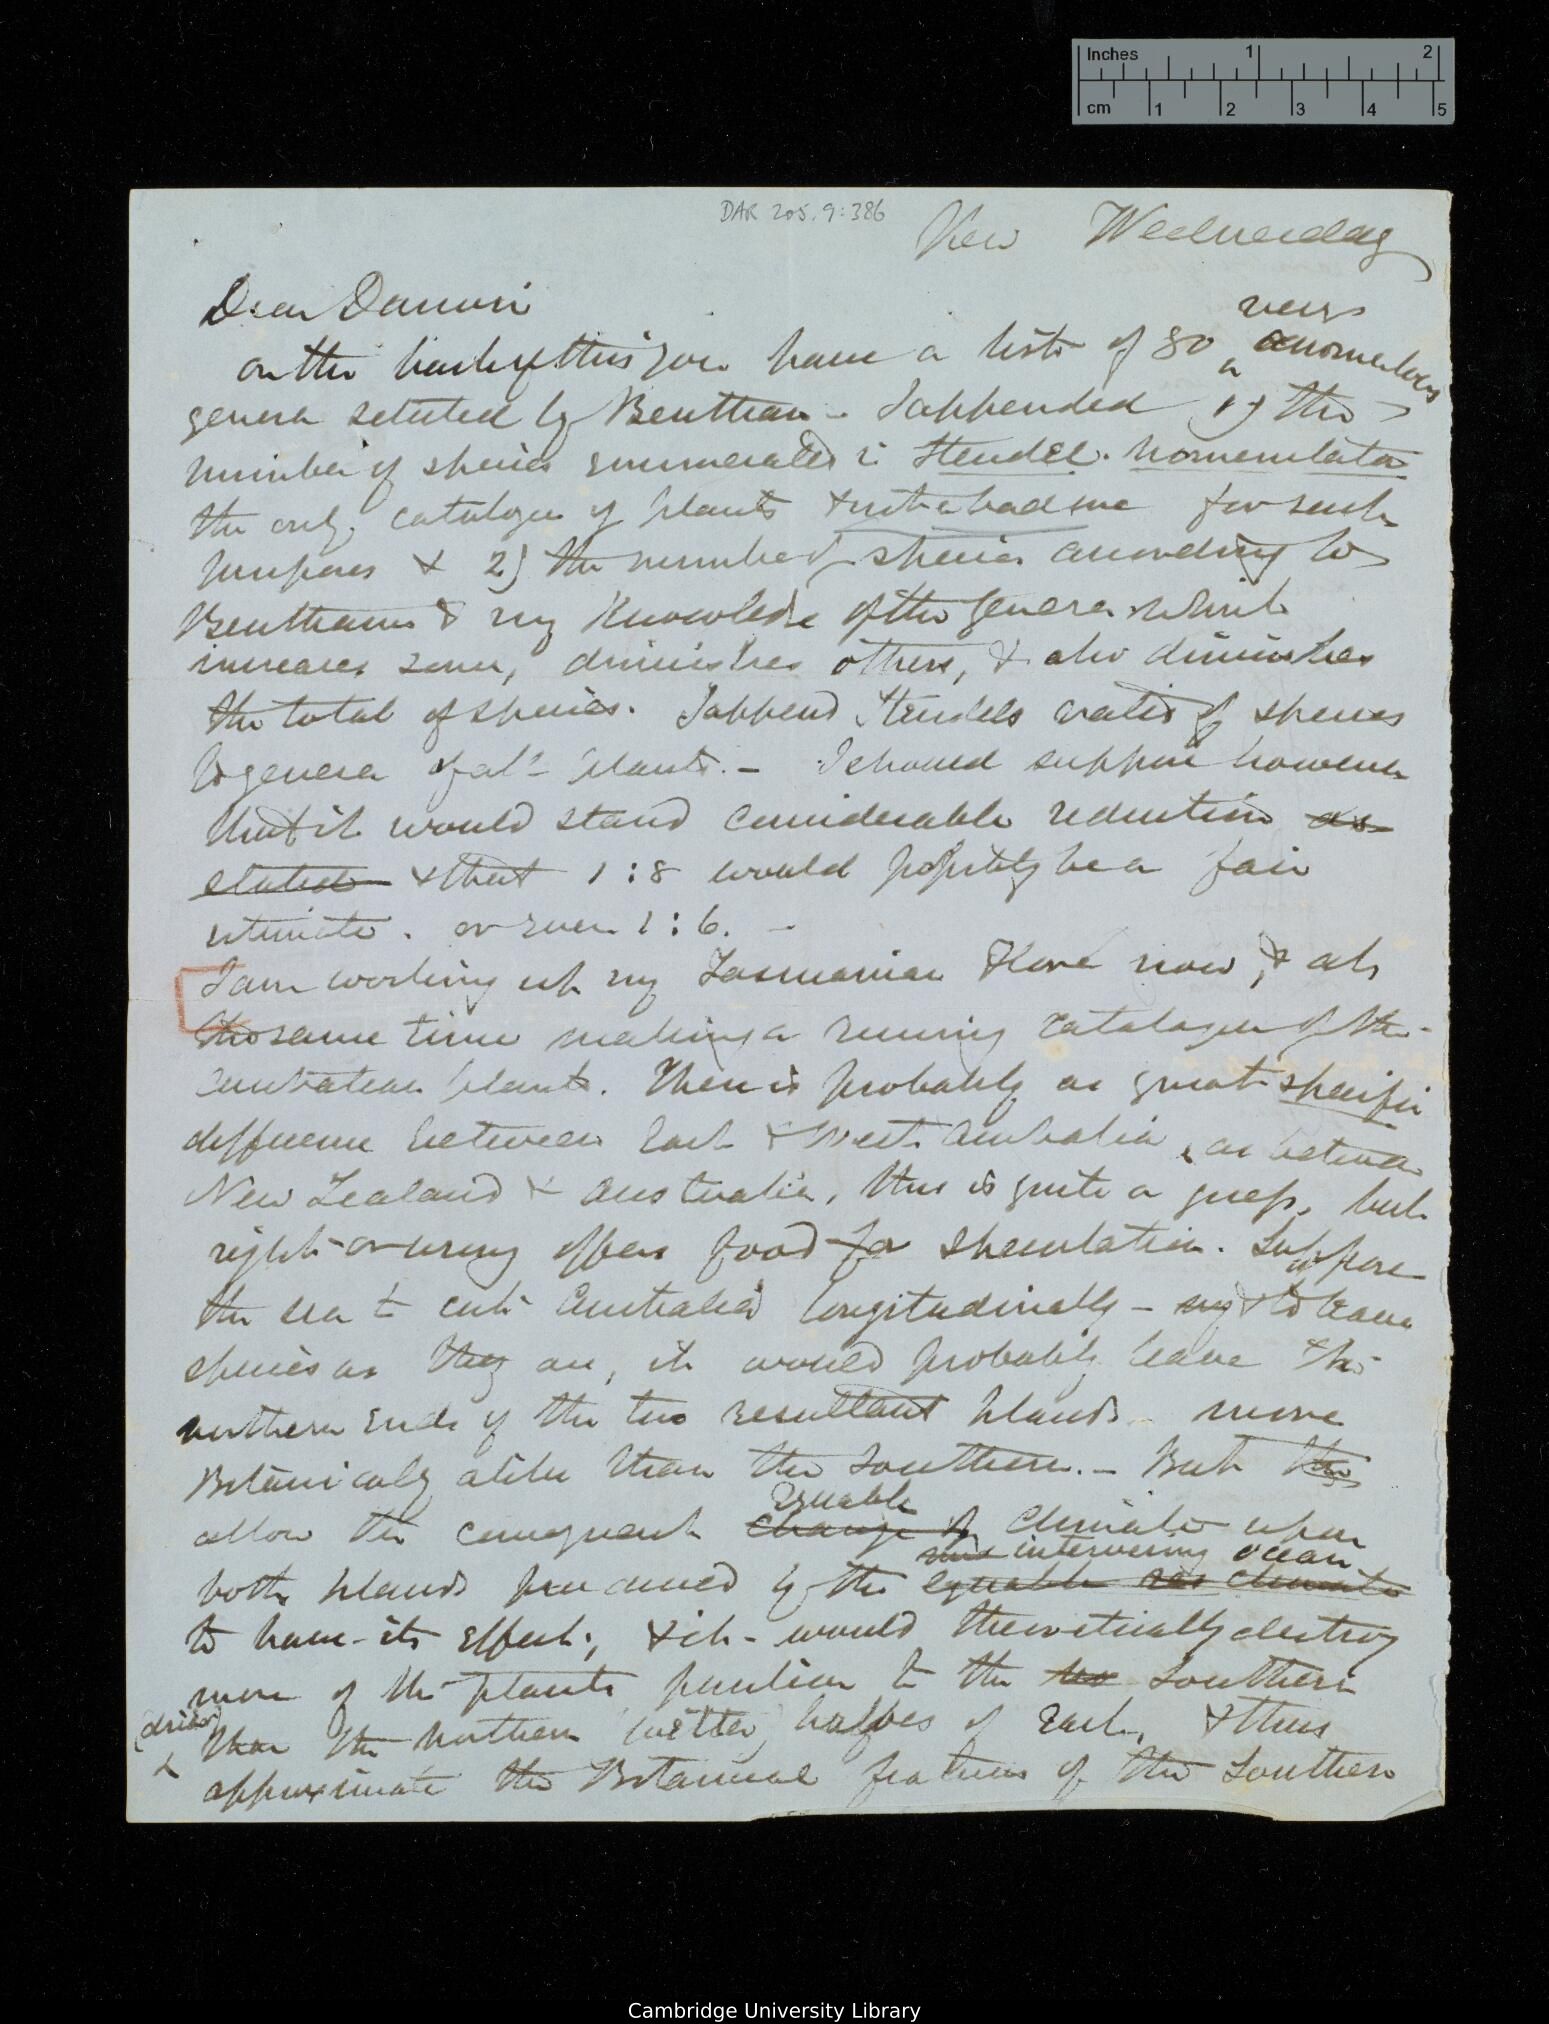 Inches 1 2
cm 1 2 3 4 5
DAR 205.9:386
Kew Wednesday
Dear Darwin
very
On the back of this you have a list of 80 anomalous
genera selected by Bentham — I appended 1) the
number of species enumerated in Steudel. Nomenclator
the only catalogue of plants & quite a bad one for such
purposes & 2) the number of species according to
Benthams & my knowledge of the genera which
increases some, diminishes others, & also diminishes
the total of species. I append Steudels ratio of species
to genera of all plants. — I should suppose however
that it would stand considerable reduction as
stated & that 1:8 would probably be a fair
estimate. or even 1:6. —
I am working up my Tasmanian Flora now, & at
the same time making a running catalogue of the
Australian plants. There is probably as great specific
difference between East & West Australia, as between
New Zealand & Australia, this is quite a guess, but
right or wrong offers food for speculation. Suppose
the sea to cut Australia longitudinally — & to leave
species as they are, it would probably leave the
northern ends of the two resultant Islands more
Botanically alike than the Southern. — But
equable
allow the consequent change of climate upon
intervening ocean
both Islands produced by the equable sea climate
to have its effect, & it would theoretically destroy
more of the plants peculiar to the Southern
(drier)
than the northern (wetter) halves of Each, & thus
approximate the Botanical features of the Southern
Cambridge University Library